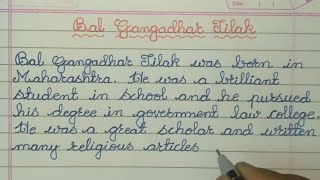 Bal Gangadhar Tilak
Bal Gangadhar Tilak was born in
Maharashtra. He was a brilliant
student in school and he pursued
his degree in government law college.
He was a great scholar and written
many religious articles